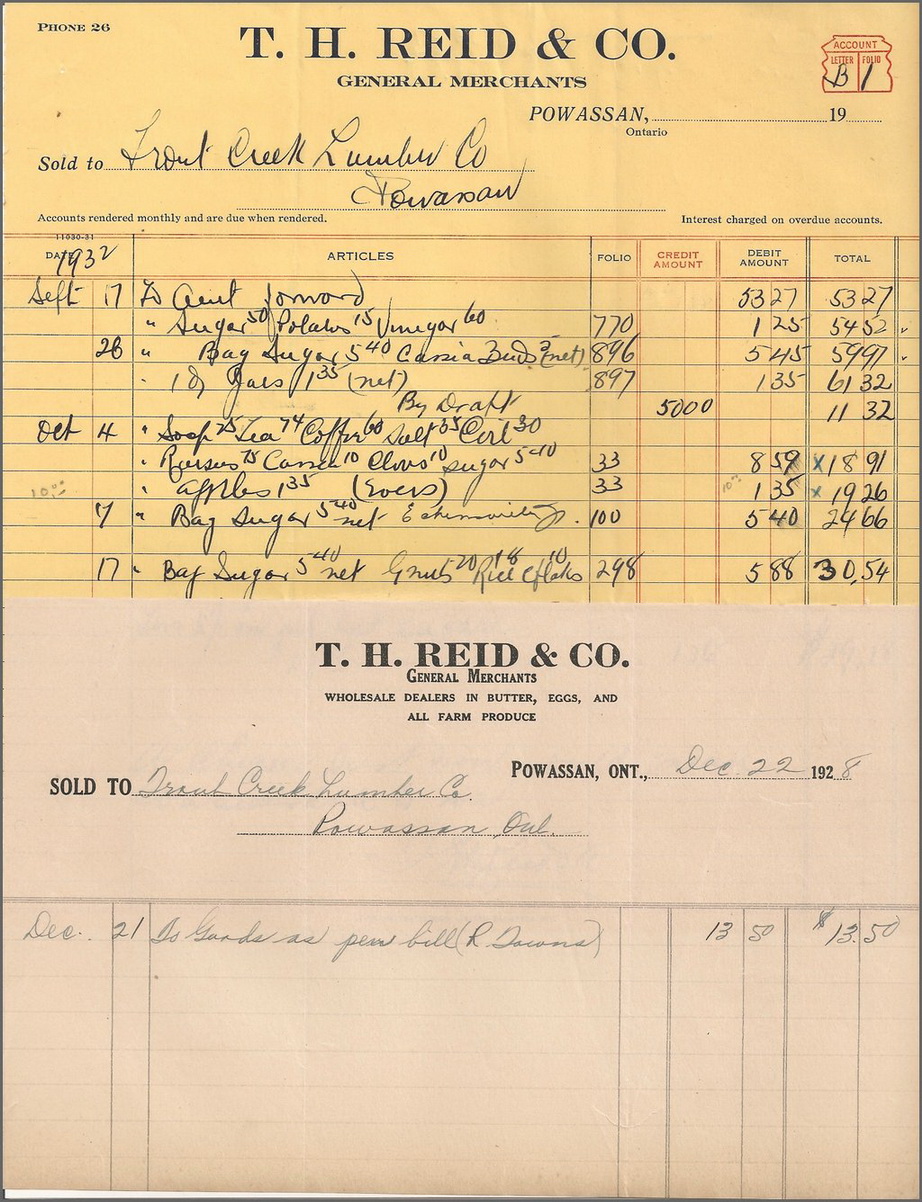 PHONE 26
T. H. REID & CO.
GENERAL MERCHANTS
ACCOUNT
LETTER FOLIO
B 1
POWASSAN, 19
Ontario
Sold to Trout Creek Lumber Co
Powassan
Accounts rendered monthly and are due when rendered. Interest charged on overdue accounts.
11030-31
DATE ARTICLES FOLIO CREDIT AMOUNT DEBIT AMOUNT TOTAL
1932
Sept 17 To Acct forward 53 27 53 27
" Sugar 50 Potatos 15 Vinegar 60 770 1 25 54 52
26 " Bag Sugar 5 40 Cassia Buds (net) 896 5 45 59 97
" Bars 1 35 (net) 897 1 35 61 32
By Draft 50 00 11 32
Oct 4 " Soap 25 Tea 74 Coffee 60 Salt 35 30
" 75 10 Cloves 10 Sugar 5 40 33 8 59 x 18 91
" apples 1 35 (Evers) 33 1 35 x 19 26
7 " Bag Sugar 5 40 net 100 5 40 24 66
17 " Bag Sugar 5 40 net Gnuts 20 Rice 18 Cflaks 10 298 5 88 30.54
T. H. REID & CO.
GENERAL MERCHANTS
WHOLESALE DEALERS IN BUTTER, EGGS, AND
ALL FARM PRODUCE
POWASSAN, ONT., Dec. 22 1928
SOLD TO Trout Creek Lumber Co.
Powassan Ont.
Dec. 21 To Goods as per bill (R. Towns) 13 50 $13.50